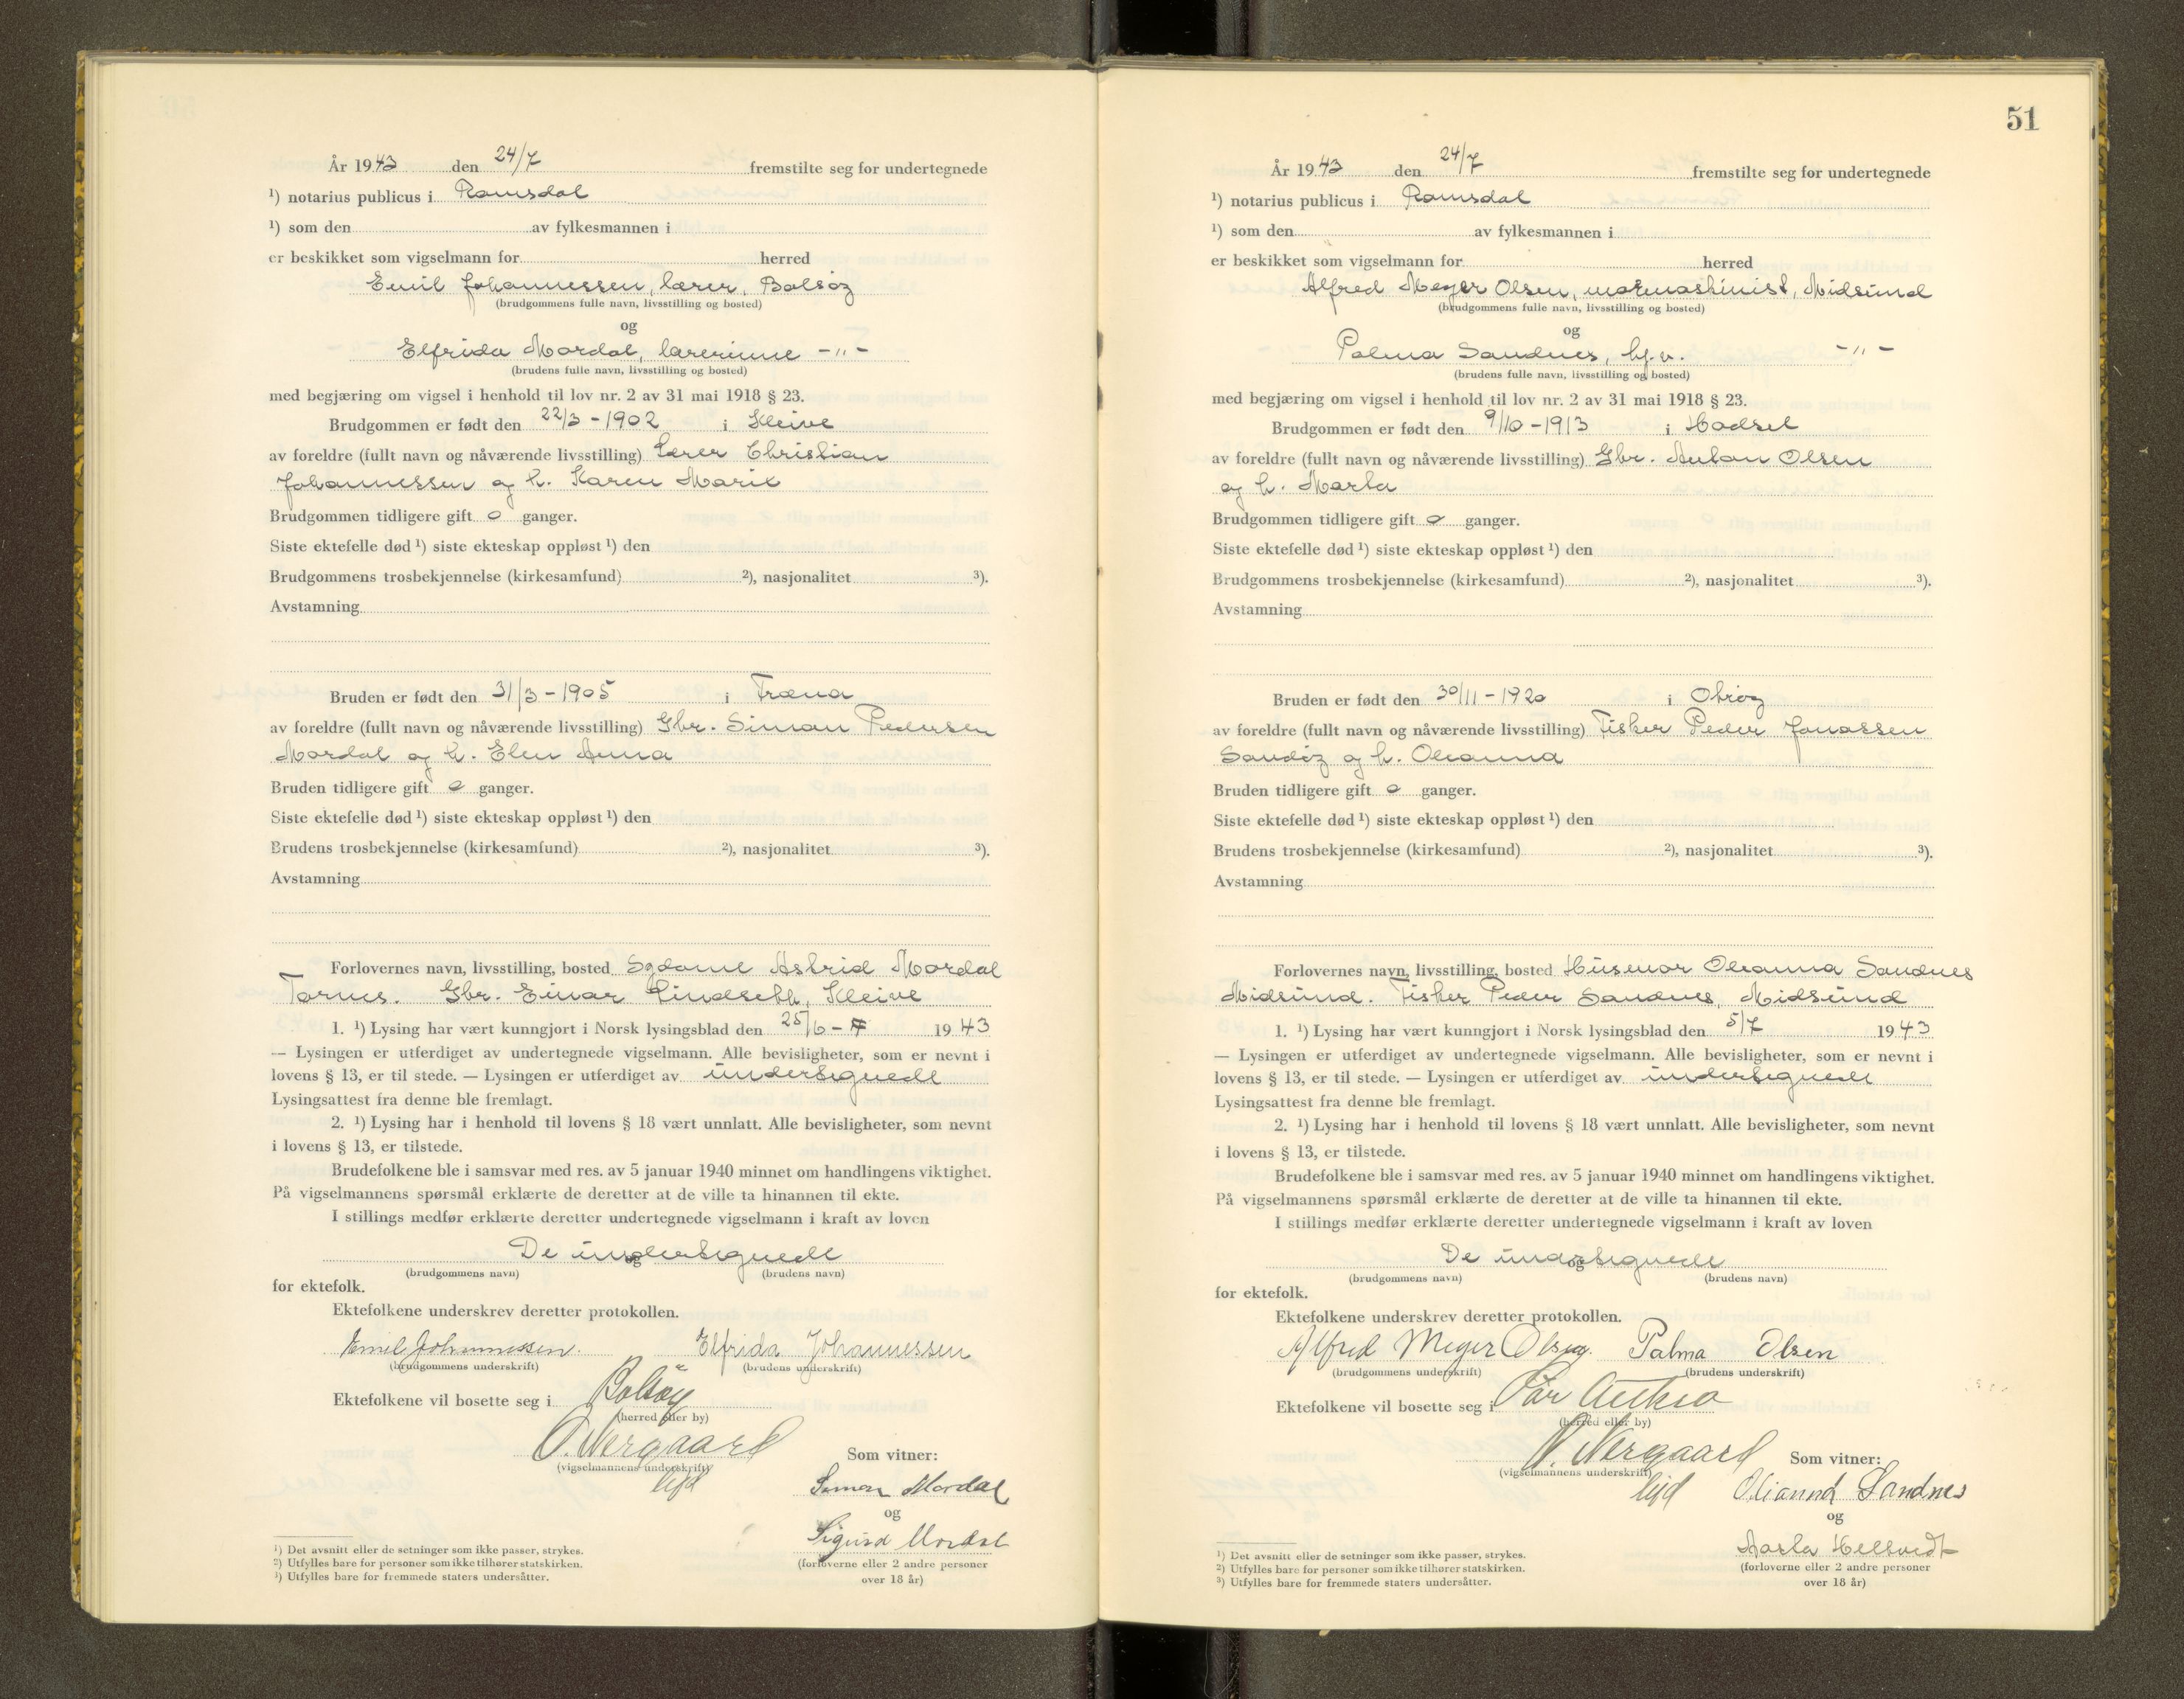 År 1943 den 24/7 fremstilte seg for undertegnede
¹) notarius publicus i Romsdal
¹) som den av fylkesmannen i
er beskikket som vigselmann for herred
Emil Johannessen, lærer, Bolsöy
(brudgommens fulle navn, livsstilling og bosted)
og
Elfrida Mordal, lærerinne -"-
(brudens fulle navn, livsstilling og bosted)
med begjæring om vigsel i henhold til lov nr. 2 av 31 mai 1918 § 23.
Brudgommen er født den 22/3 - 1902 i Kleive
av foreldre (fullt navn og nåværende livsstilling) Lærer Christian
Johannessen og h. Karen Marie
Brudgommen tidligere gift 0 ganger.
Siste ektefelle død ¹) siste ekteskap oppløst ¹) den
Brudgommens trosbekjennelse (kirkesamfund) ²), nasjonalitet ³).
Avstamning
Bruden er født den 31/3 - 1905 i Træna
av foreldre (fullt navn og nåværende livsstilling) Gbr. Simon Pedersen
Mordal og h. Elen Anna
Bruden tidligere gift 0 ganger.
Siste ektefelle død ¹) siste ekteskap oppløst ¹) den
Brudens trosbekjennelse (kirkesamfund) ²), nasjonalitet ³).
Avstamning
Forlovernes navn, livsstilling, bosted Sydame Astrid Mordal
Tornes. Gbr. Einar Lindseth, Kleive
1. ¹) Lysing har vært kunngjort i Norsk lysingsblad den 25/6 - 1943
— Lysingen er utferdiget av undertegnede vigselmann. Alle bevisligheter, som er nevnt i
lovens § 13, er til stede. — Lysingen er utferdiget av undertegnede
Lysingsattest fra denne ble fremlagt.
2. ¹) Lysing har i henhold til lovens § 18 vært unnlatt. Alle bevisligheter, som nevnt
i lovens § 13, er tilstede.
Brudefolkene ble i samsvar med res. av 5 januar 1940 minnet om handlingens viktighet.
På vigselmannens spørsmål erklærte de deretter at de ville ta hinannen til ekte.
I stillings medfør erklærte deretter undertegnede vigselmann i kraft av loven
De undertegnede
og
(brudgommens navn) (brudens navn)
for ektefolk.
Ektefolkene underskrev deretter protokollen.
Emil Johannessen. Elfrida Johannessen
(brudgommens underskrift) (brudens underskrift)
Ektefolkene vil bosette seg i Bolsöy
(herred eller by)
O. Nergaard
(vigselmannens underskrift)
Som vitner:
Simon Mordal
og
Sigurd Mordal
(forloverne eller 2 andre personer
over 18 år)
¹) Det avsnitt eller de setninger som ikke passer, strykes.
²) Utfylles bare for personer som ikke tilhører statskirken.
³) Utfylles bare for fremmede staters undersåtter.
51
År 1943 den 24/7 fremstilte seg for undertegnede
¹) notarius publicus i Romsdal
¹) som den av fylkesmannen i
er beskikket som vigselmann for herred
Alfred Meyer Olsen, motormaskinist, Midsund
(brudgommens fulle navn, livsstilling og bosted)
og
Palma Sandnes, hj.v. -"-
(brudens fulle navn, livsstilling og bosted)
med begjæring om vigsel i henhold til lov nr. 2 av 31 mai 1918 § 23.
Brudgommen er født den 9/10 - 1913 i Hadsel
av foreldre (fullt navn og nåværende livsstilling) Gbr. Anton Olsen
og h. Marta
Brudgommen tidligere gift 0 ganger.
Siste ektefelle død ¹) siste ekteskap oppløst ¹) den
Brudgommens trosbekjennelse (kirkesamfund) ²), nasjonalitet ³).
Avstamning
Bruden er født den 30/11 - 1920 i Otröy
av foreldre (fullt navn og nåværende livsstilling) Fisker Peder Jonassen
Sandöy og h. Oleanna
Bruden tidligere gift 0 ganger.
Siste ektefelle død ¹) siste ekteskap oppløst ¹) den
Brudens trosbekjennelse (kirkesamfund) ²), nasjonalitet ³).
Avstamning
Forlovernes navn, livsstilling, bosted Husmor Oleanna Sandnes
Midsund. Fisker Peder Sandnes, Midsund
1. ¹) Lysing har vært kunngjort i Norsk lysingsblad den 5/7 1943
— Lysingen er utferdiget av undertegnede vigselmann. Alle bevisligheter, som er nevnt i
lovens § 13, er til stede. — Lysingen er utferdiget av undertegnede
Lysingsattest fra denne ble fremlagt.
2. ¹) Lysing har i henhold til lovens § 18 vært unnlatt. Alle bevisligheter, som nevnt
i lovens § 13, er tilstede.
Brudefolkene ble i samsvar med res. av 5 januar 1940 minnet om handlingens viktighet.
På vigselmannens spørsmål erklærte de deretter at de ville ta hinannen til ekte.
I stillings medfør erklærte deretter undertegnede vigselmann i kraft av loven
De undertegnede
og
(brudgommens navn) (brudens navn)
for ektefolk.
Ektefolkene underskrev deretter protokollen.
Alfred Meyer Olsen. Palma Olsen
(brudgommens underskrift) (brudens underskrift)
Ektefolkene vil bosette seg i Sør Aukra
(herred eller by)
O. Nergaard
(vigselmannens underskrift)
Som vitner:
Olianna Sandnes
og
Marta Hellvedt
(forloverne eller 2 andre personer
over 18 år)
¹) Det avsnitt eller de setninger som ikke passer, strykes.
²) Utfylles bare for personer som ikke tilhører statskirken.
³) Utfylles bare for fremmede staters undersåtter.